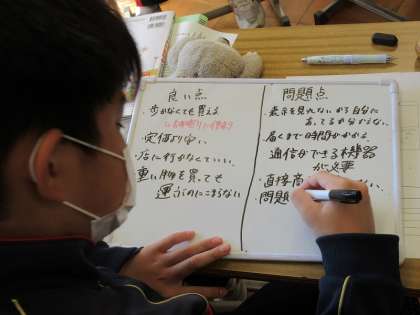 良い点
・歩かなくても買える
・定価より安い
・店に行かなくていい。
・重い物を買っても
運ぶのにこまらない
問題点
・表示を見れないから自分に
あってるか分からない
・届くまで時間がかかる
通信ができる機器
が必要
・直接商
ない。
・問題